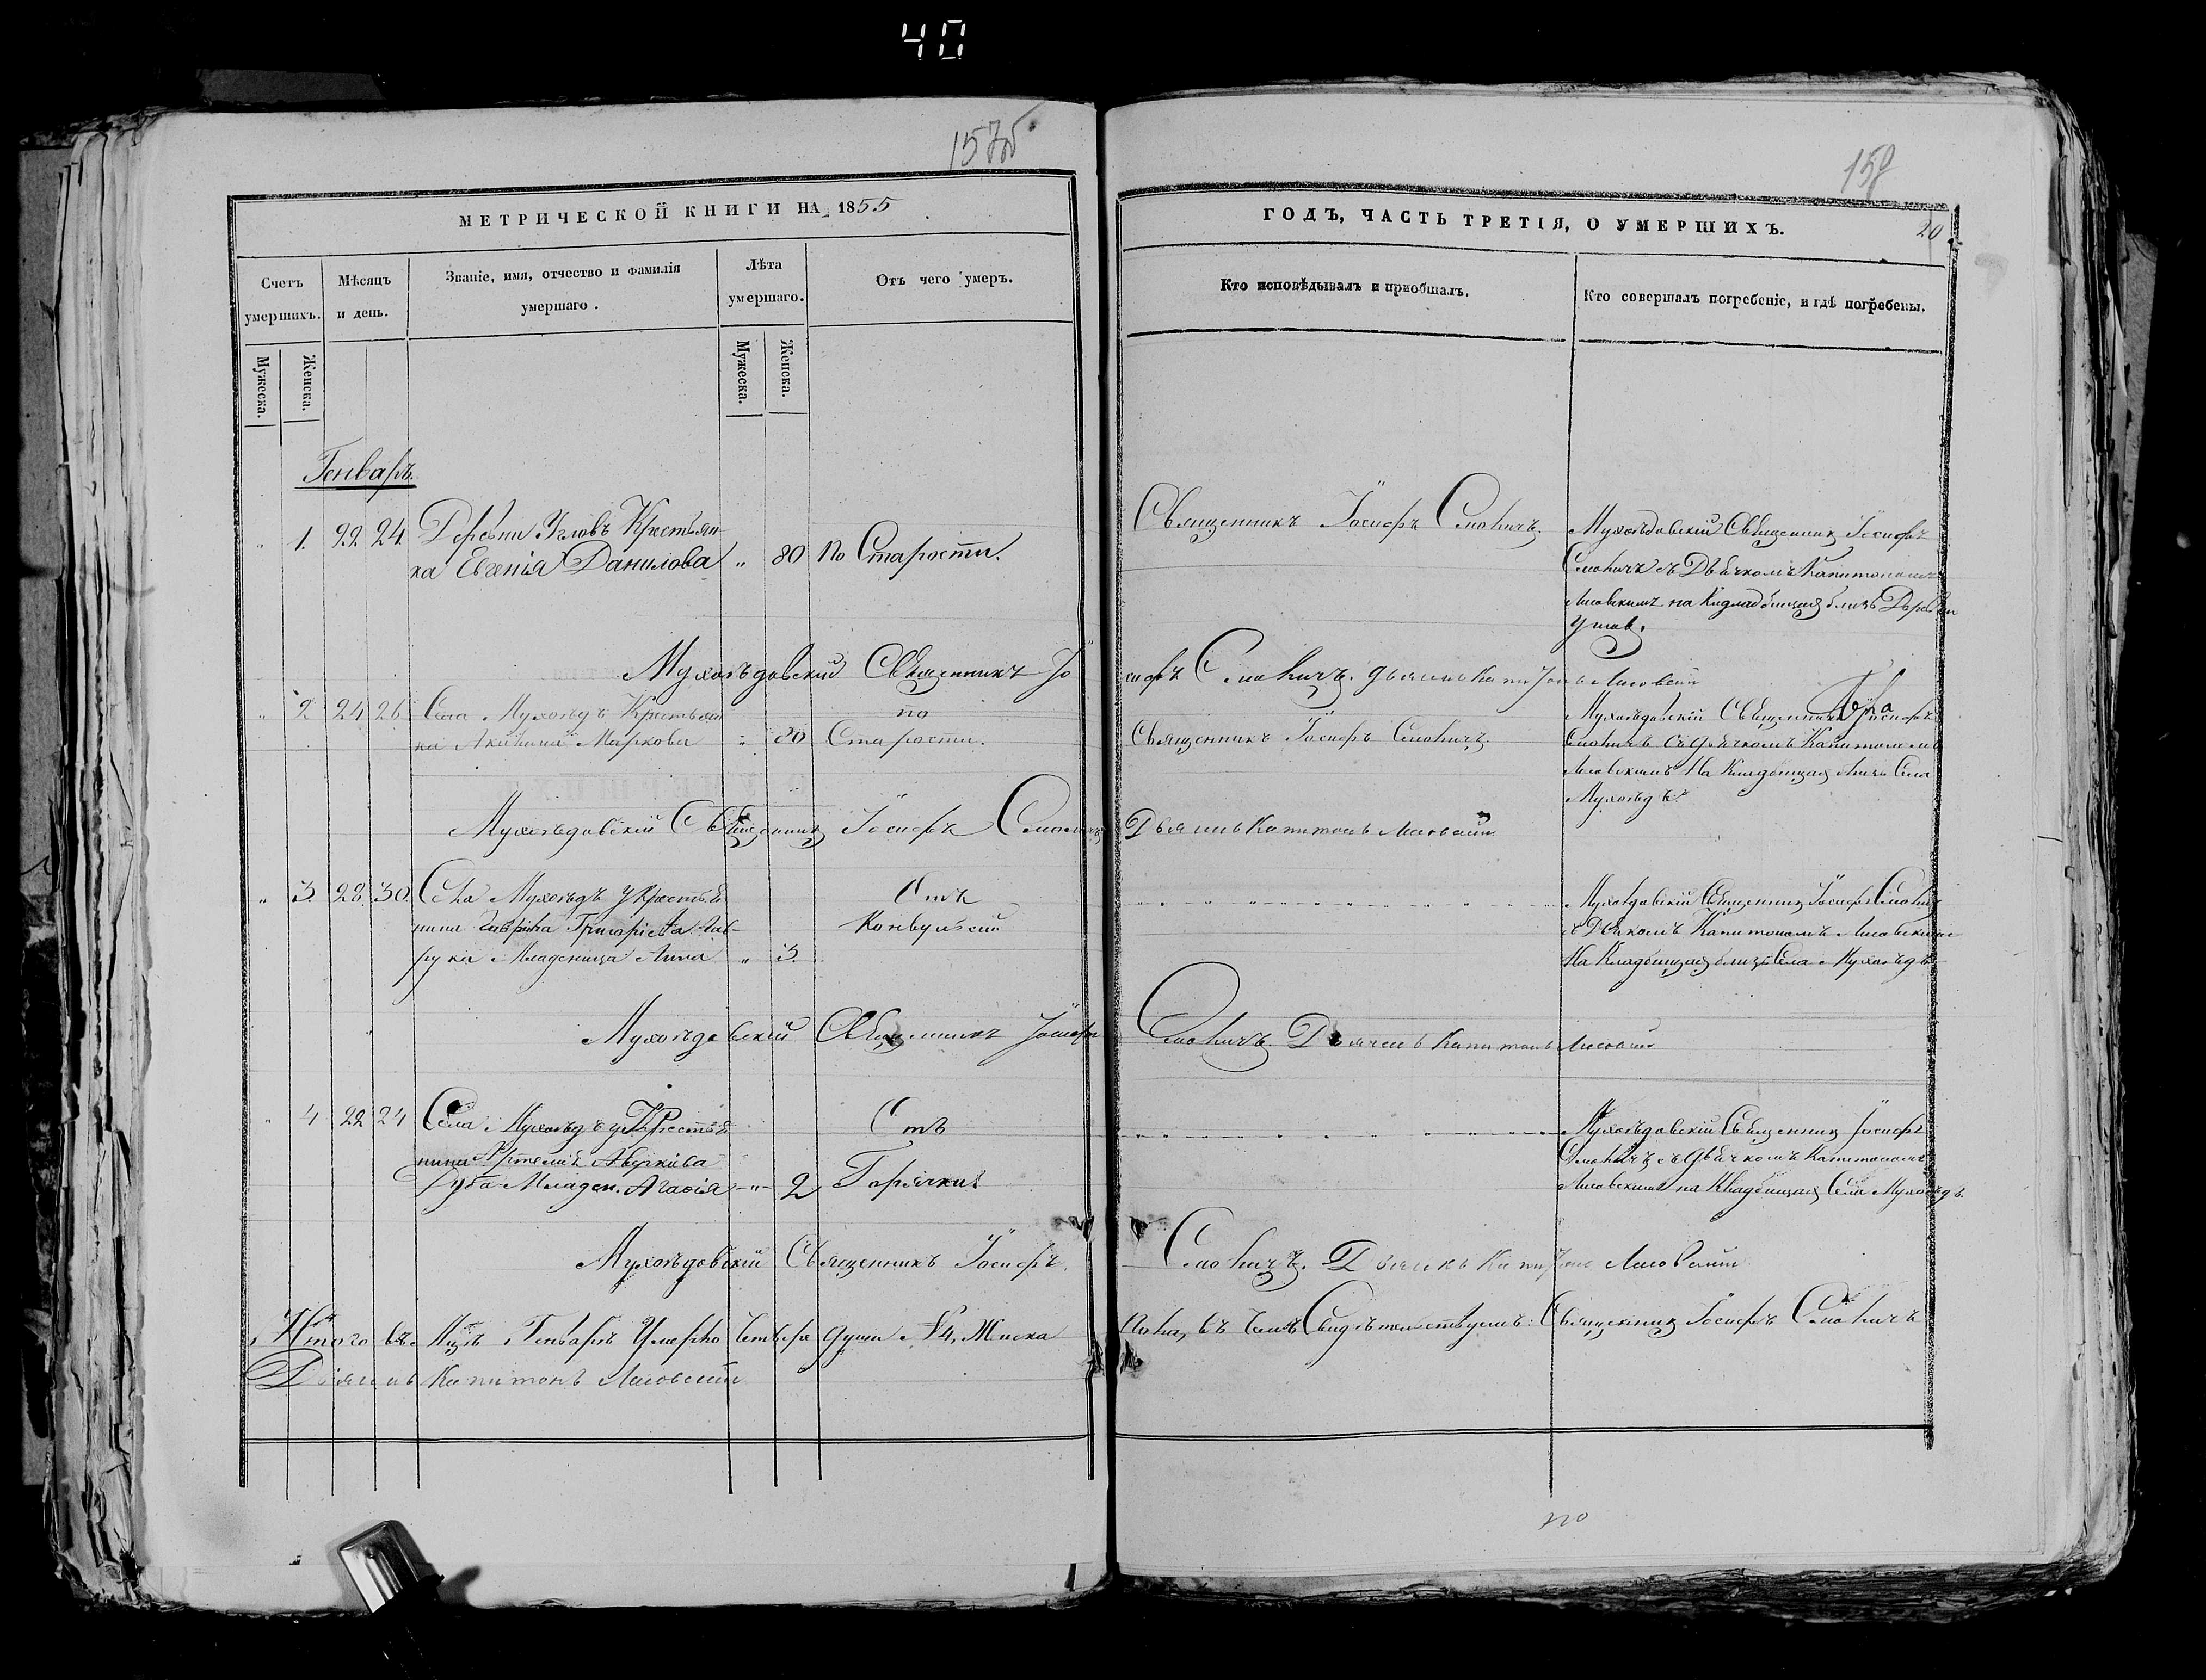 40
157об
158
МЕТРИЧЕСКОЙ КНИГИ НА 1855
ГОДЪ, ЧАСТЬ ТРЕТІЯ, О УМЕРШИХЪ.
20
Счетъ умершихъ.
Мѣсяцъ и день.
Званіе, имя, отчество и фамилія
умершаго.
Лѣта
умершаго.
Отъ чего умеръ.
Кто исповѣдывалъ и пріобщалъ.
Кто совершалъ погребеніе, и гдѣ погребены.
Мужеска.
Женска.
Мужеска.
Женска.
Генварь.
" 1. 22. 24. Деревни Угловъ Крестьян-
ка Евгенія Данилова " 80 По Старости.
Священникъ Іосифъ
Мухоѣдовскій Священникъ Іосифъ
съ Дьячкомъ Капитономъ
Лисовскимъ на Кладбищѣ близь Деревни
Углов.
Мухоѣдовскій Священникъ Іосифъ
" 2 24 26 Села Мухоѣдъ Крестьян
ка Маркова " 80 по Старости.
Священникъ Іосифъ
Мухоѣдовскій Священникъ Іосифъ
съ дьячкомъ Капитономъ
Лисовскимъ На Кладбищѣ близь Села
Мухоѣдъ.
Мухоѣдовскій Священникъ Іосифъ
Дьячекъ Капитонъ Лисовскій
" 3. 28. 30. Села Мухоѣдъ у Крестья
нина Гаврила Григоріева
Младеница Анна " 3.
Отъ
Конвульсіи
Мухоѣдовскій Священникъ Іосифъ
съ Дьячкомъ Капитономъ Лисовскимъ
На Кладбищѣ близь Села Мухоѣдъ
Мухоѣдовскій Священникъ Іосифъ
Дьячекъ Капитонъ Лисовскій
" 4 22 24 Села Мухоѣдъ у Крестья
нина Артемія
Младен. Агафія " 2
Отъ
Горячки
Мухоѣдовскій Священникъ Іосифъ
съ дьячкомъ Капитономъ
Лисовскимъ на Кладбищѣ Села Мухоѣдъ
Мухоѣдовскій Священникъ Іосифъ
Дьячекъ Капитонъ Лисовскій
Итого въ Мцѣ Генварѣ Умерло Четыре души № 4, Женска
пола, въ чемъ Свидѣтельствуемъ: Священникъ Іосифъ
Дьячекъ Капитонъ Лисовскій